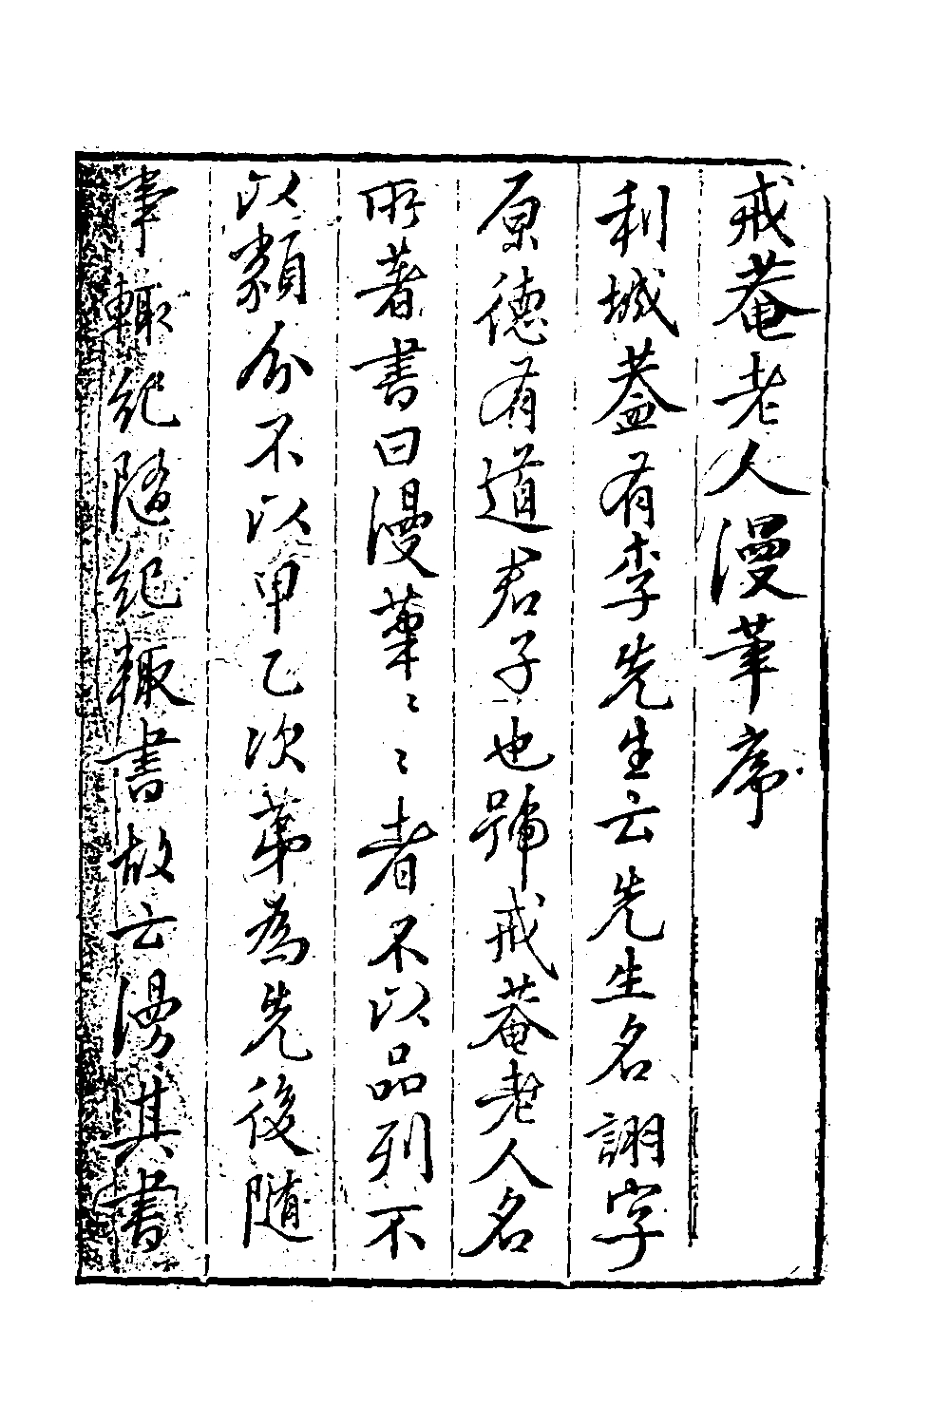 戒菴老人漫筆序
利城葢有李先生云先生名詡字
原德有道君子也號戒菴老人名
所著書曰漫筆〻〻者不以品列不
以類分不以甲乙次第為先後隨
事輙紀隨紀輙書故云漫其書